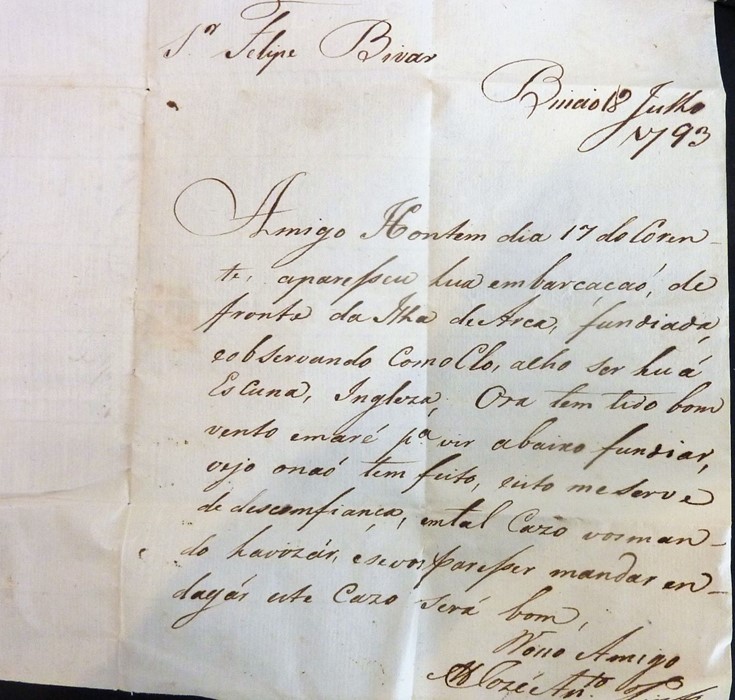 Sr. Felipe Bivar
18 Julho
1793
Amigo Hontem dia 17 do Coren-
te, aparesseu hua embarcacaó, de
fronte da Ilha de Arca, fundiada,
e observando Com o Clo, acho ser huá
Escuna, Ingleza, Ora tem tido bom
vento emaré pa. vir abaixo fundiar,
vejo onaó tem feito, eisto me serve
de descomfiança, em tal Cazo vos man-
do havizár, esevos paresser mandar en-
dagár este Cazo será bom,
Vosso Amigo
Jozé Anto.